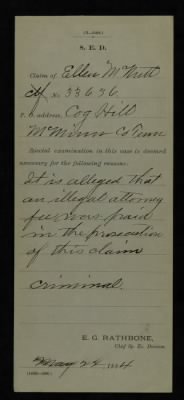 S. E. D.
Claim of Ellen McNutt
Ctf. No. 33636
P. O. address, Cog Hill
McMinn Co Tenn
Special examination in this case is deemed
necessary for the following reasons:
It is alleged that
an illegal attorney
fee was paid
in the prosecution
of this claim
criminal.
E. G. RATHBONE,
Chief Sp. Ex. Division.
May 24, 1884